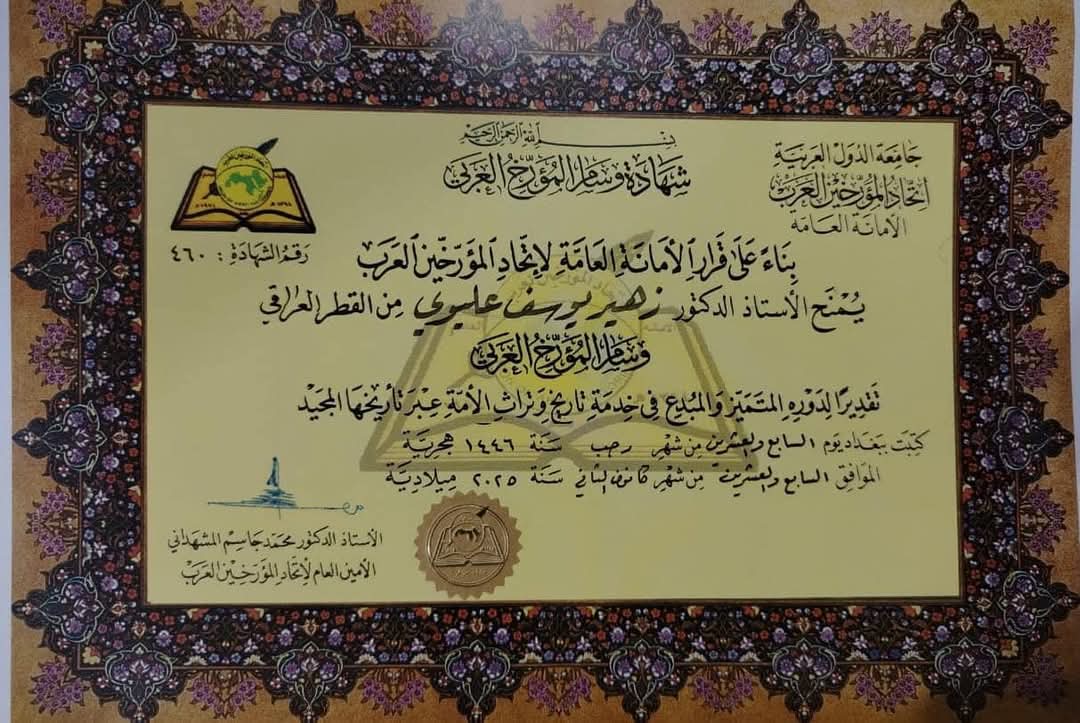 بسم الله الرحمن الرحيم
جامعة الدول العربية
اتحاد المؤرخين العرب
الأمانة العامة
شهادة وسام المؤرخ العربي
رقم الشهادة : ٤٦٠
بناءً على قرار الأمانة العامة لاتحاد المؤرخين العرب
يُمنح الأستاذ الدكتور زهير يوسف عليوي من القطر العراقي
وسام المؤرخ العربي
تقديرًا لدوره المتميز والمبدع في خدمة تاريخ وتراث الأمة عبر تأريخها المجيد
كتبت ببغداد يوم السابع والعشرين من شهر رجب سنة ١٤٤٦ هجرية
الموافق السابع والعشرين من شهر كانون الثاني سنة ٢٠٢٥ ميلادية
الأستاذ الدكتور محمد جاسم المشهداني
الأمين العام لاتحاد المؤرخين العرب